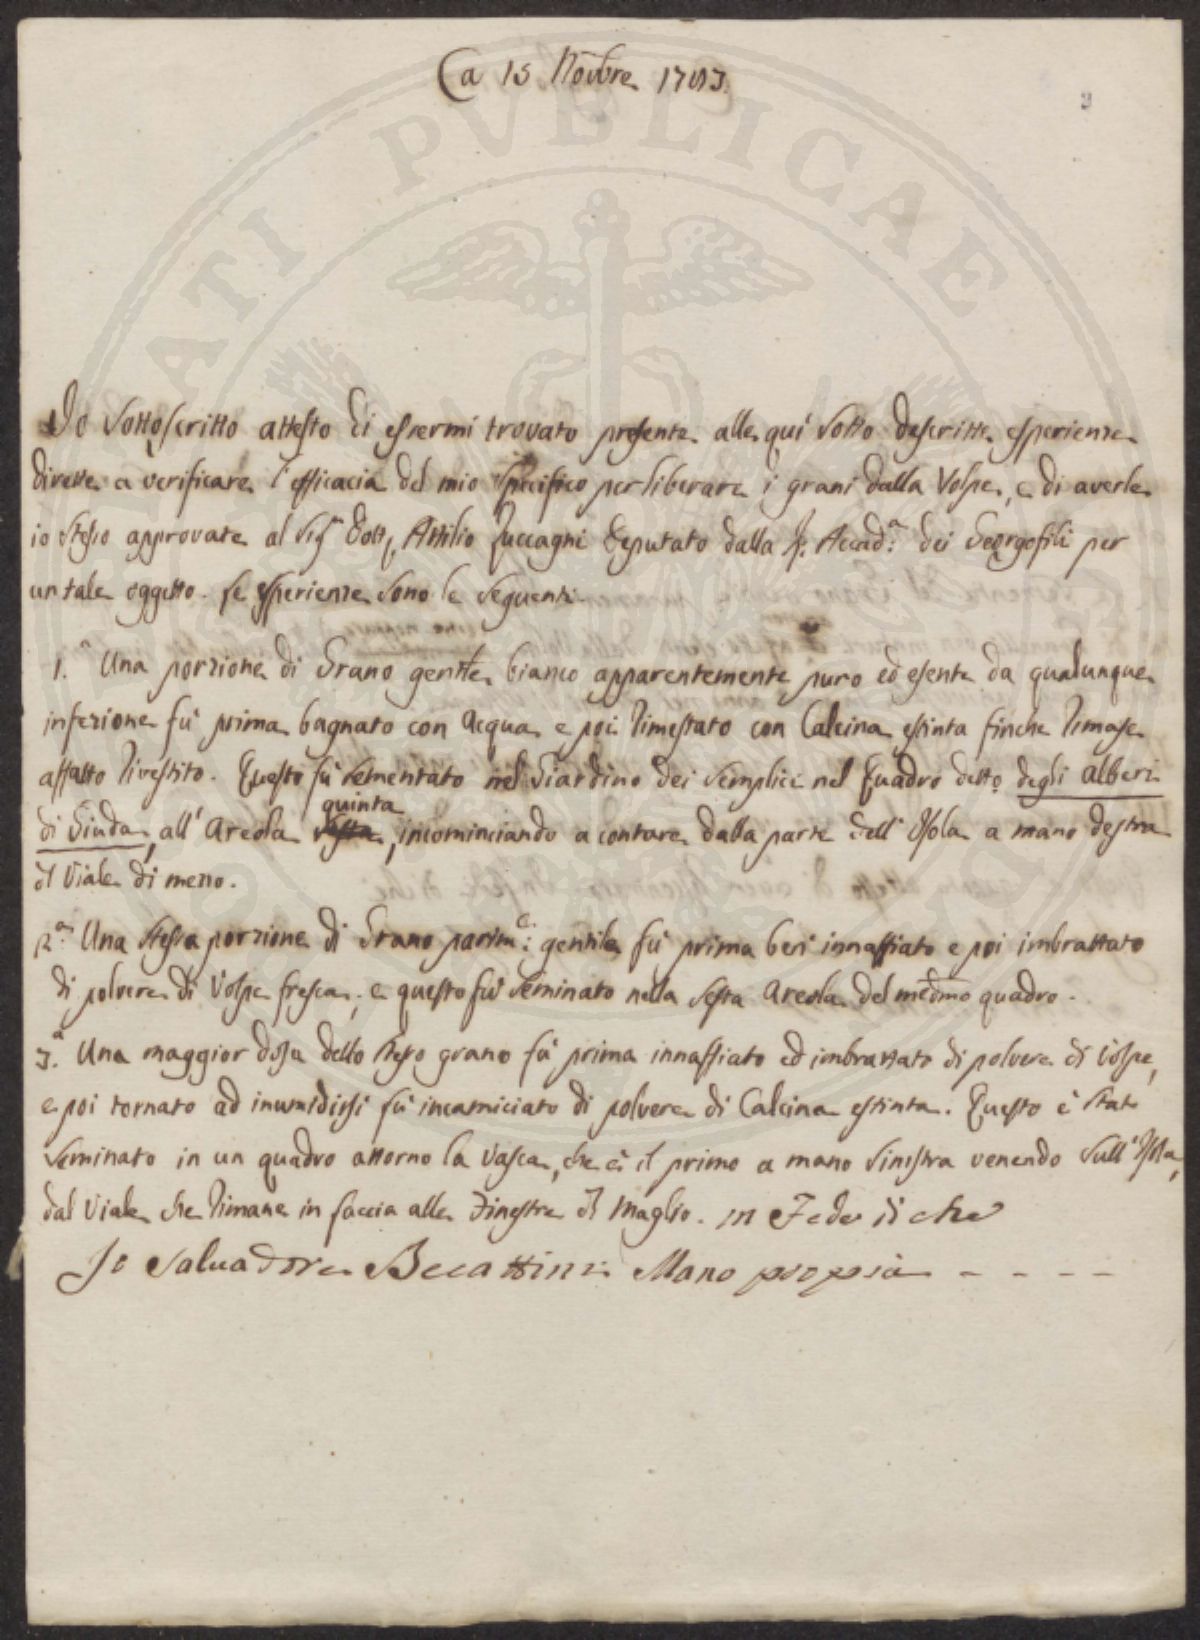 PUBLICAE
A 15 Novbre 1783.
3
Io Sottoscritto attesto di essermi trovato presente alle quì sotto descritte esperienze
dirette a verificare l'efficacia del mio specifico per liberare i grani dalla Volpe, e di averle
io stesso approvate al Sigr Dott. Attilio Zuccagni Deputato dalla R. Accada: dei Georgofili per
un tale oggetto. Le esperienze sono le seguenti.
1.a Una porzione di Grano gentile bianco apparentemente puro ed esente da qualunque
infezione fù prima bagnato con Acqua e poi rimestato con Calcina estinta finche rimase
affatto rivestito. Questo fù sementato nel Giardino dei Semplici nel Quadro detto degli alberi
di Giuda, all'Areola quinta, incominciando a contare dalla parte dell'Isola a mano destra
del Viale di mezzo.
2.a Una stessa porzione di Grano parimte: gentile fù prima ben innaffiato e poi imbrattato
di polvere di Volpe fresca; e questo fù seminato nella sesta Areola del medmo quadro.
3.a Una maggior dose dello stesso grano fù prima innaffiato ed imbrattato di polvere di Volpe,
e poi tornato ad inumidirsi fù incamiciato di polvere di Calcina estinta. Questo è stato
seminato in un quadro attorno la Vasca, che è il primo a mano sinistra venendo sull'Isola,
dal Viale che rimane in faccia alle Finestre del Maglio. in Fede di che
Io Salvadore Becattini Mano propia - - - -